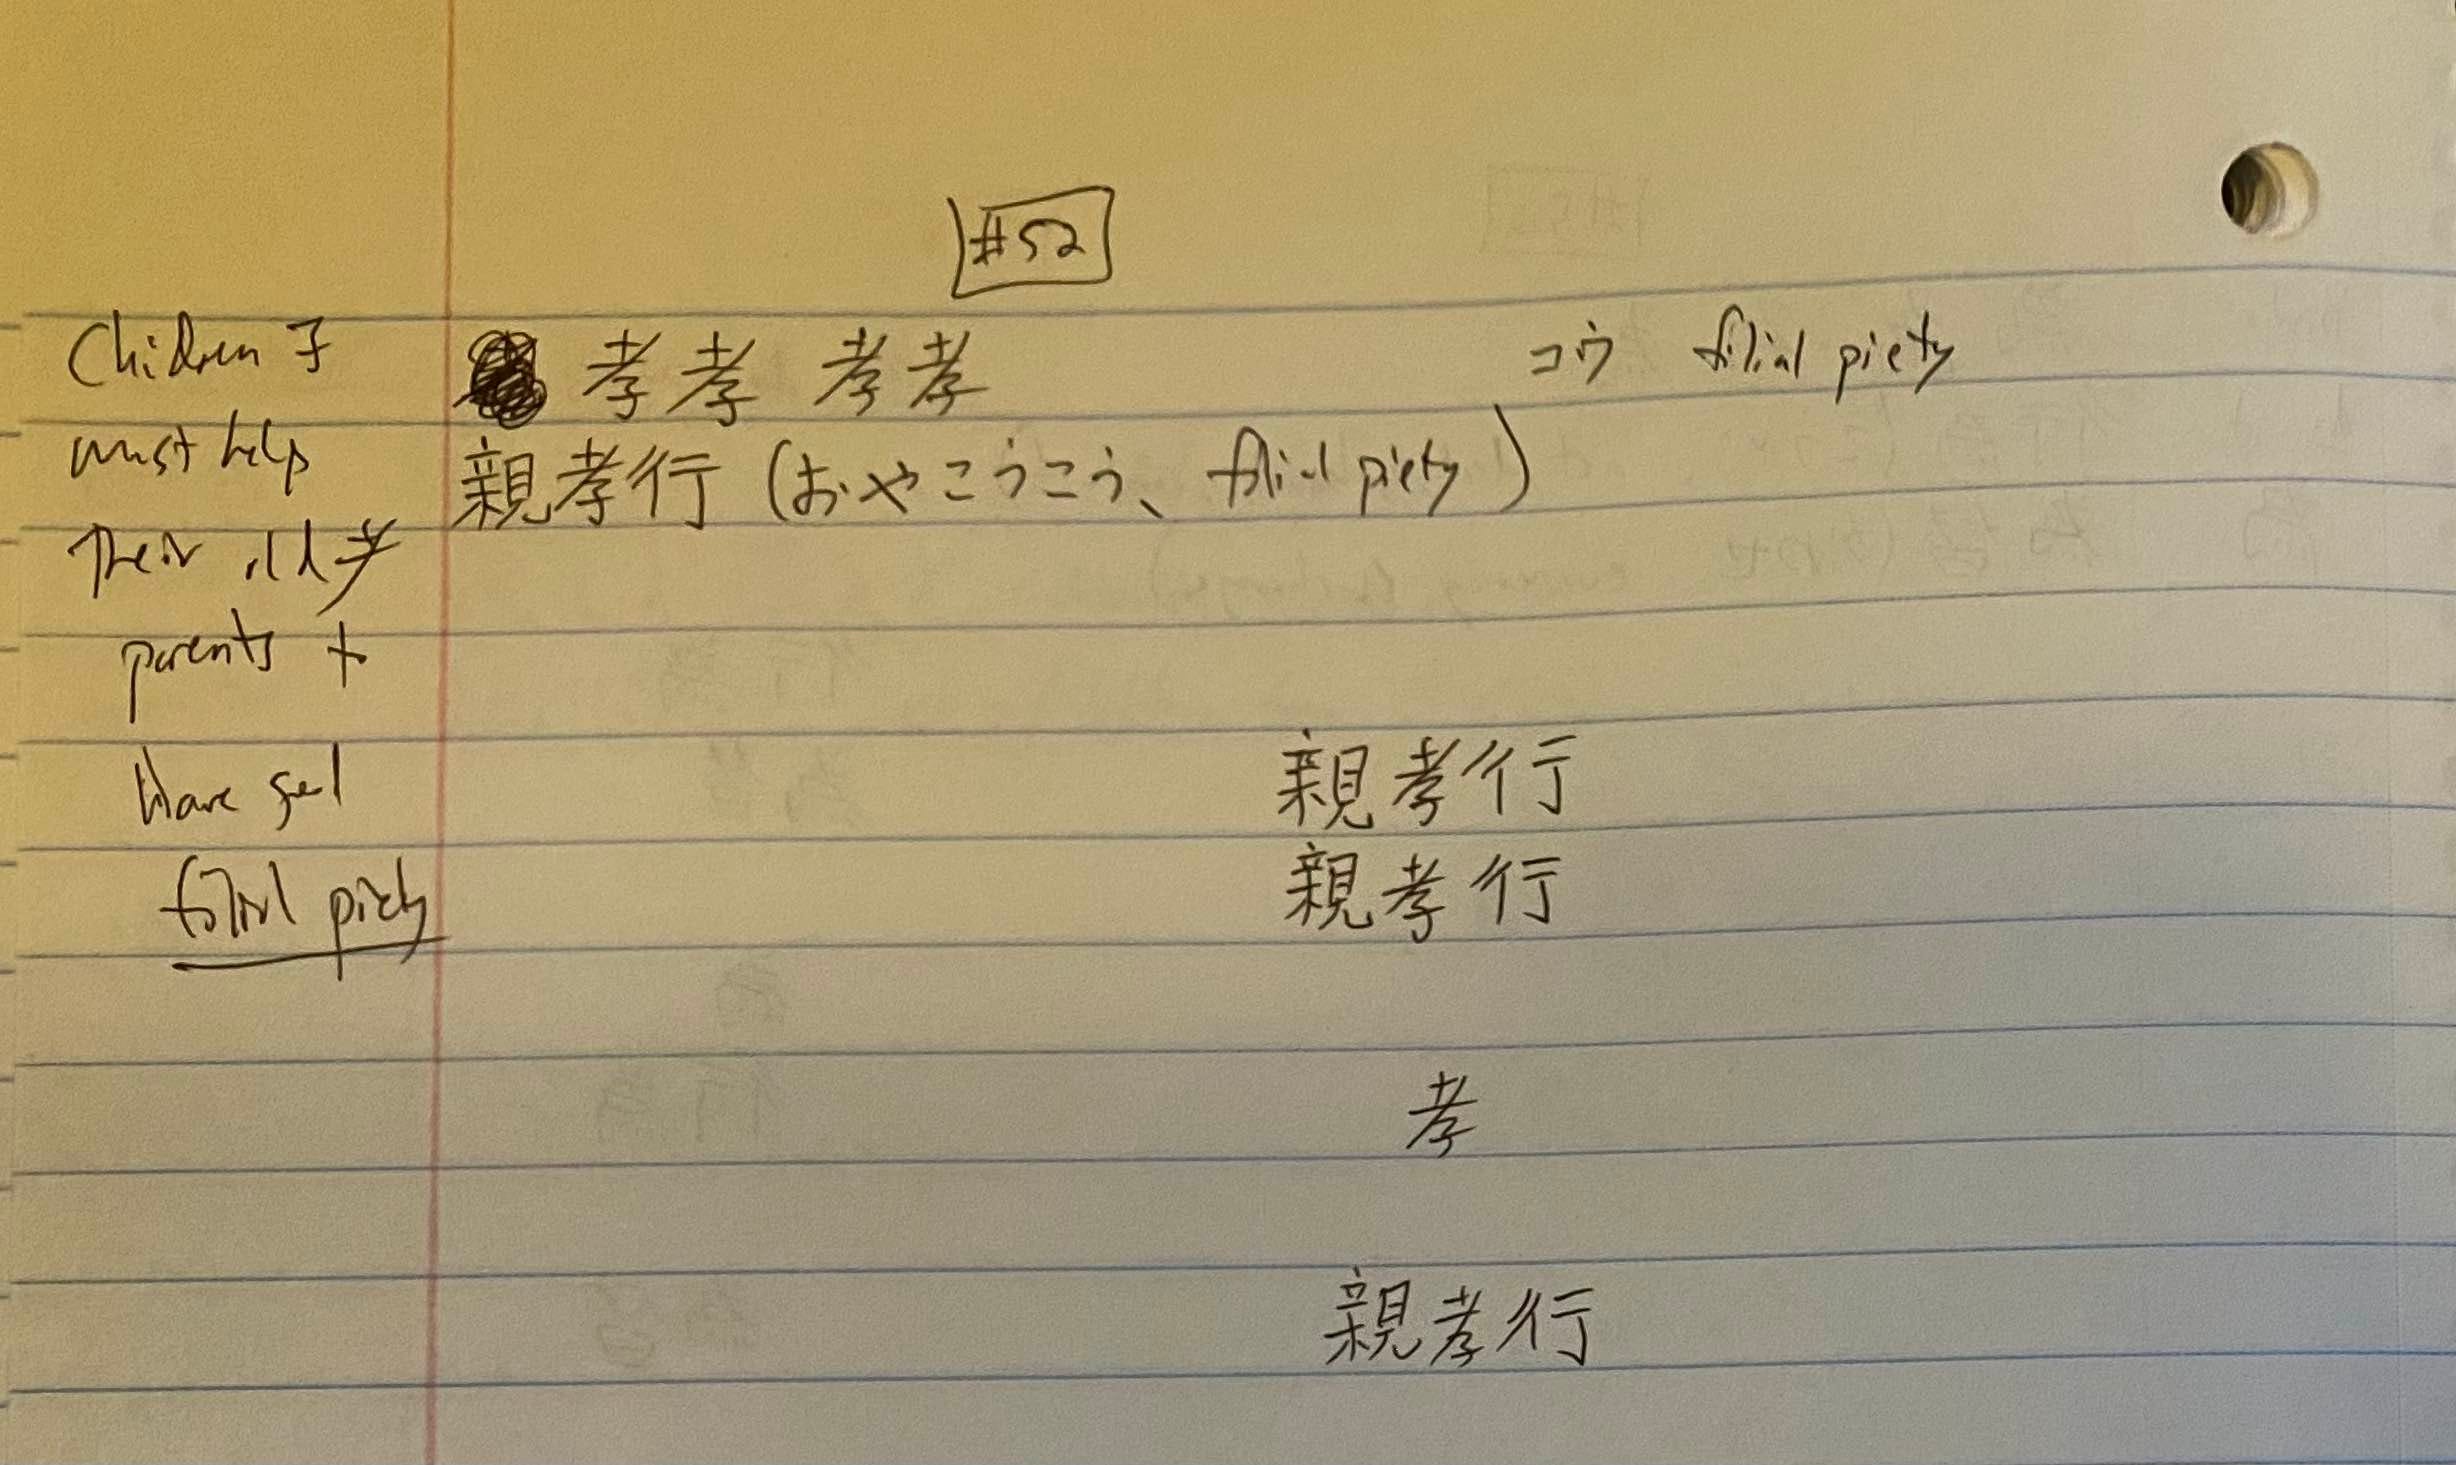 #52
Children 子
孝孝 孝孝 コウ filial piety
must help
親孝行 (おやこうこう、filial piety)
Their old 耂
parents to
have
filial piety
親孝行
親孝行
孝
親孝行